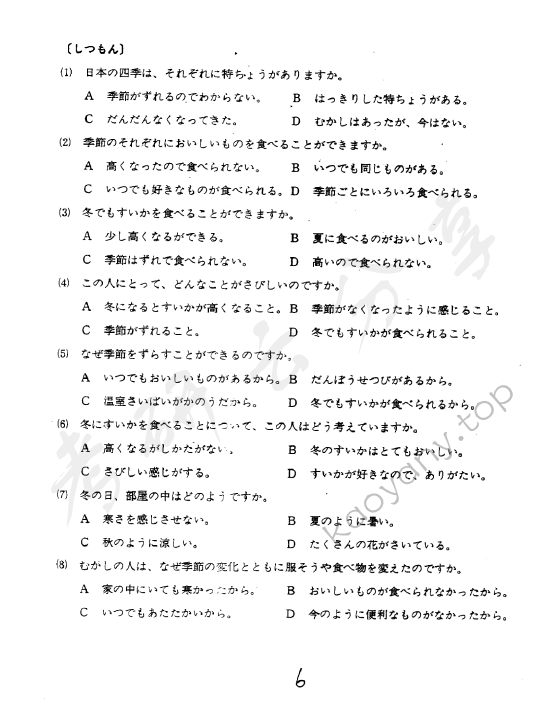 〔しつもん〕
⑴ 日本の四季は、それぞれに特ちょうがありますか。
A 季節がずれるのでわからない。 B はっきりした特ちょうがある。
C だんだんなくなってきた。 D むかしはあったが、今はない。
⑵ 季節のそれぞれにおいしいものを食べることができますか。
A 高くなったので食べられない。 B いつでも同じものがある。
C いつでも好きなものが食べられる。 D 季節ごとにいろいろ食べられる。
⑶ 冬でもすいかを食べることができますか。
A 少し高くなるができる。 B 夏に食べるのがおいしい。
C 季節はずれで食べられない。 D 高いので食べられない。
⑷ この人にとって、どんなことがさびしいのですか。
A 冬になるとすいかが高くなること。 B 季節がなくなったように感じること。
C 季節がずれること。 D 冬でもすいかが食べられること。
⑸ なぜ季節をずらすことができるのですか。
A いつでもおいしいものがあるから。 B だんぼうせつびがあるから。
C 温室さいばいがかのうだから。 D 冬でもすいかが食べられるから。
⑹ 冬にすいかを食べることについて、この人はどう考えていますか。
A 高くなるがしかたがない。 B 冬のすいかはとてもおいしい。
C さびしい感じがする。 D すいかが好きなので、ありがたい。
⑺ 冬の日、部屋の中はどのようですか。
A 寒さを感じさせない。 B 夏のように暑い。
C 秋のように涼しい。 D たくさんの花がさいている。
⑻ むかしの人は、なぜ季節の変化とともに服そうや食べ物を変えたのですか。
A 家の中にいても寒かったから。 B おいしいものが食べられなかったから。
C いつでもあたたかいから。 D 今のように便利なものがなかったから。
6
考研云分享
kaoyany.top